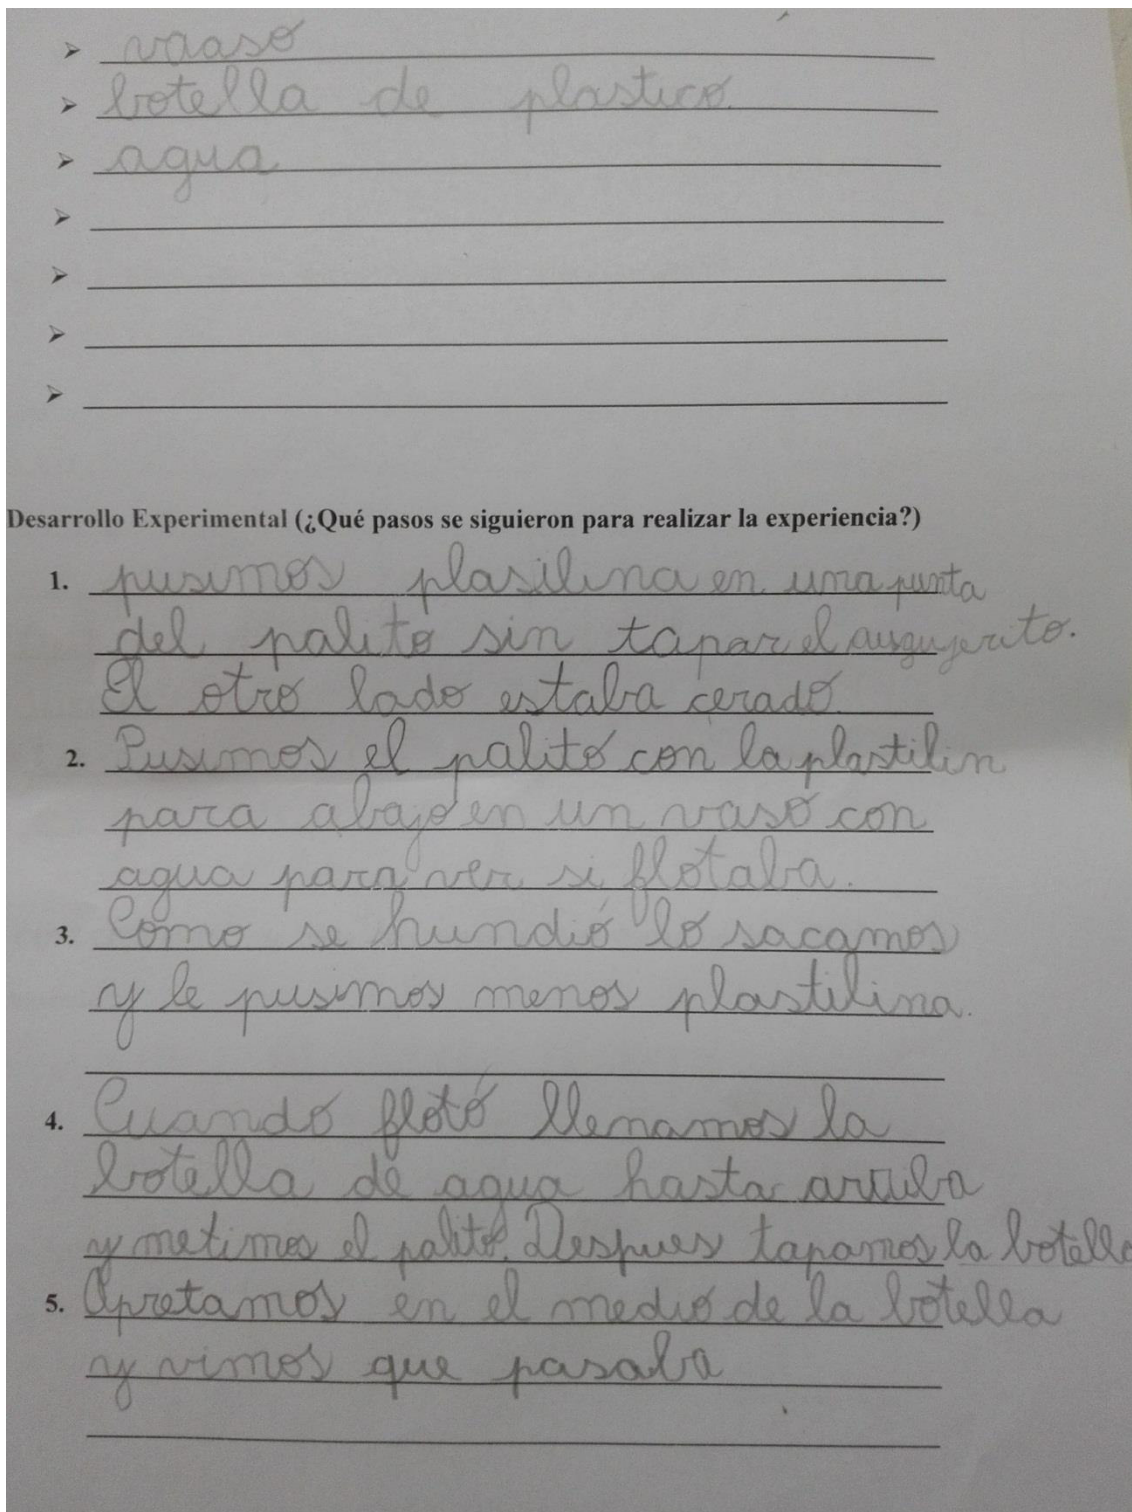 ➤ vaaso
➤ botella de plastico
➤ agua
➤
➤
➤
➤
Desarrollo Experimental (¿Qué pasos se siguieron para realizar la experiencia?)
1. pusimos plasilina en una punta
del palito sin tapar el ausgujerito.
El otro lado estaba cerado.
2. Pusimos el palito con la plastilin
para abajo en un vaso con
agua para ver si flotaba.
3. Como se hundió lo sacamos
y le pusimos menos plastilina.
4. Cuando flotó llenamos la
botella de agua hasta arriba
y metimos el palito. Despues tapamos la botella
5. Apretamos en el medio de la botella
y vimos que pasaba